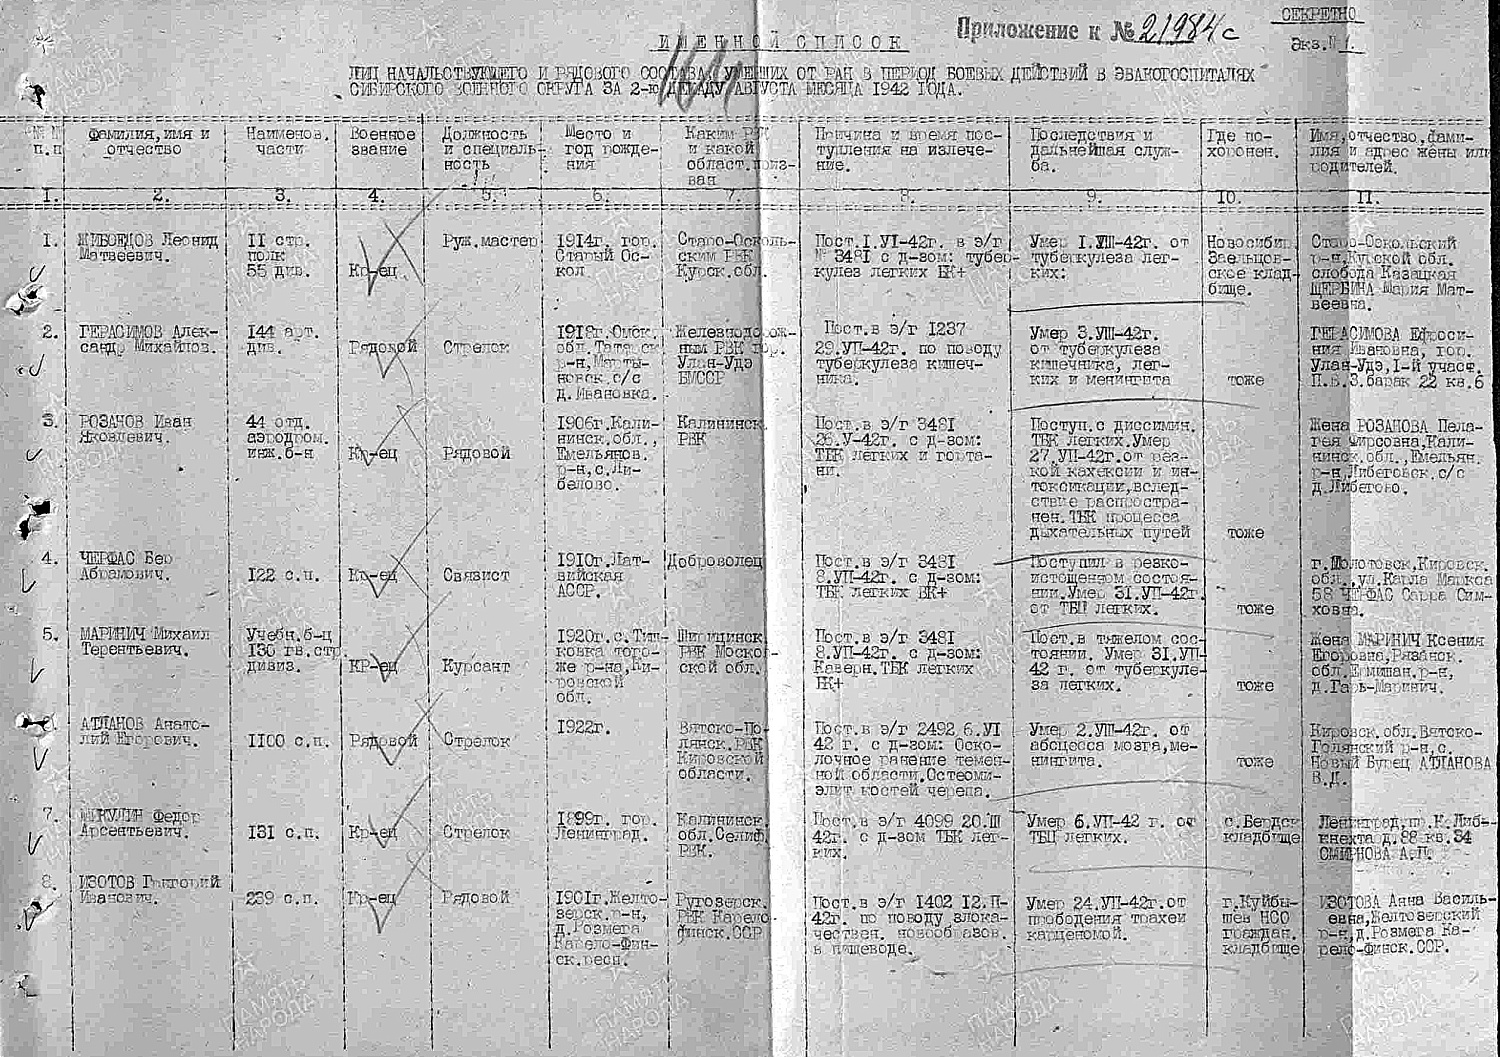 СЕКРЕТНО
Приложение к № 21984с
Экз.№ 1.
ИМЕННОЙ СПИСОК
ЛИЦ НАЧАЛЬСТВУЮЩЕГО И РЯДОВОГО СОСТАВА, УМЕРШИХ ОТ РАН В ПЕРИОД БОЕВЫХ ДЕЙСТВИЙ В ЭВАКОГОСПИТАЛЯХ
СИБИРСКОГО ВОЕННОГО ОКРУГА ЗА 2-ю ДЕКАДУ АВГУСТА МЕСЯЦА 1942 ГОДА.
№ №
п.п
Фамилия, имя и
отчество
Наименов.
части
Военное
звание
Должность
и специаль-
ность
Место и
год рожде-
ния
Каким РВК
и какой
област. приз-
ван
Причина и время пос-
тупления на излече-
ние.
Последствия и
дальнейшая служ-
ба.
Где по-
хоронен.
Имя, отчество, фами-
лия и адрес жены или
родителей.
1. 2. 3. 4. 5. 6. 7. 8. 9. 10. 11.
1.
ЖИВОЕДОВ Леонид
Матвеевич.
11 стр.
полк
55 див.
Кр-ец
Руж.мастер
1914г. гор.
Старый Ос-
кол
Старо-Осколь-
ским РВК
Курск.обл.
Пост.1.VI-42г. в э/г
№ 3481 с д-зом: тубер-
кулез легких БК+
Умер 1.VIII-42г. от
туберкулеза лег-
ких:
Новосибир.
Заельцов-
ское клад-
бище.
Старо-Оскольский
р-н,Курской обл.
слобода Казацкая
ЩЕРБИНА Мария Мат-
веевна.
2.
ГЕРАСИМОВ Алек-
сандр Михайлов.
144 арт.
див.
Рядовой
Стрелок
1918г.Омск.
обл.Татарск.
р-н,Марты-
новск.с/с
д.Ивановка.
Железнодорож-
ным РВК гор.
Улан-Удэ
БМССР
Пост.в э/г 1237
29.УП-42г. по поводу
туберкулеза кишеч-
ника.
Умер 3.УШ-42г.
от туберкулеза
кишечника, лег-
ких и менингита
тоже
ГЕРАСИМОВА Ефроси-
ния Ивановна, гор.
Улан-Удэ,1-й участ.
П.В.З.барак 22 кв.6
3.
РОЗАНОВ Иван
Яковлевич.
44 отд.
аэродром.
инж.б-н
Кр-ец
Рядовой
1906г.Кали-
нинск.обл.,
Емельянов.
р-н,с.Ли-
белово.
Калининск.
РВК
Пост.в э/г 3481
26.У-42г. с д-зом:
ТБК легких и горта-
ни.
Поступ.с диссимин.
ТБК легких.Умер
27.УП-42г.от рез-
кой кахексии и ин-
токсикации,вслед-
ствие распростра-
нен.ТБК процесса
дыхательных путей
тоже
Жена РОЗАНОВА Пела-
гея Фирсовна,Кали-
нинск.обл.,Емельян.
р-н,Либеговск.с/с
д.Либегово.
4.
ЧЕРФАС Бер
Абрамович.
122 с.п.
Кр-ец
Связист
1910г.Лат-
вийская
АССР.
Доброволец
Пост.в э/г 3481
8.УП-42г. с д-зом:
ТБК легких ВК+
Поступил в резко-
истощенном состоя-
нии.Умер 31.УП-42г.
от ТБЦ легких.
тоже
г.Молотовск,Кировск.
обл.,ул.Карла Маркса
58 ЧЕРФАС Сарра Сим-
ховна.
5.
МАРИНИЧ Михаил
Терентьевич.
Учебн.б-ц
136 гв.стр
дивиз.
КР-ец
Курсант
1920г.с.Тип-
ковка того-
же р-на,Ки-
ровской
обл.
РВК Моско-
ской обл.
Пост.в э/г 3481
8.УП-42г. с д-зом:
Каверн.ТБК легких
БК+
Пост.в тяжелом сос-
тоянии. Умер 31.УП-
42 г. от туберкуле-
за легких.
тоже
Жена МАРИНИЧ Ксения
Егоровна,Рязанск.
обл.Ермишан.р-н,
д.Гарь-Маринич.
АТЛАНОВ Анато-
лий Егорович.
1100 с.п.
Рядовой
Стрелок
1922г.
Вятско-По-
лянск.РВК
Кировской
области.
Пост. в э/г 2492 6.УI
42 г. с д-зом: Оско-
лочное ранение темен-
ной области.Остеоми-
элит костей черепа.
Умер 2.УШ-42г. от
абсцесса мозга,ме-
нингита.
тоже
Кировск.обл.Вятско-
Голянский р-н,с.
Новый Бурец АТЛАНОВА
В.Д.
7.
МИКУЛИН Федор
Арсентьевич.
131 с.п.
Кр-ец
Стрелок
1899г. гор.
Ленинград.
Калининск.
обл.Селиж.
РВК.
Пост.в э/г 4099 20.Ш
42г. с д-зом ТБК лег-
ких.
Умер 6.УП-42 г. от
ТБЦ легких.
с.Бердск
кладбище
Ленинград,пр.К.Либ-
кнехта д.88 кв.34
СМИРНОВА А.П.
8.
ИЗОТОВ Григорий
Иванович.
239 с.п.
Кр-ец
Рядовой
1901г.Желто-
зерск.р-н,
д.Розмега
Карело-Фин-
ск.респ.
Ругозерск.
РВК Карело-
финск.ССР
Пост.в э/г 1402 12.П-
42г. по поводу злока-
чествен. новообразов.
в пищеводе.
Умер 24.УП-42г.от
прободения трахеи
карциномой.
г.Куйбы-
шев НСО
граждан.
кладбище
ИЗОТОВА Анна Василь-
евна,Желтозерский
р-н,д.Розмега Ка-
рело-финск.ССР.
ПАМЯТЬ
НАРОДА